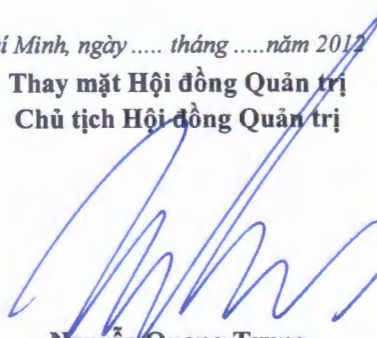 í Minh, ngày ..... tháng .....năm 2012
Thay mặt Hội đồng Quản trị
Chủ tịch Hội đồng Quản trị
Nguyễn Quang